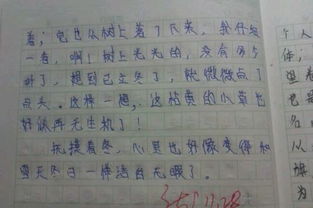 着；它也从树上落了下来，我仔细
一看，啊！树上光光的，没有多少
叶了，想到已立冬了，就微微点了
点头。这样一想，这枯黄的小草也
好似再无生机了！
抚摸着冬，心里也好像变得和
今天冬日一样洁白无暇了。
个人
体；
也是
名
从
旗
为